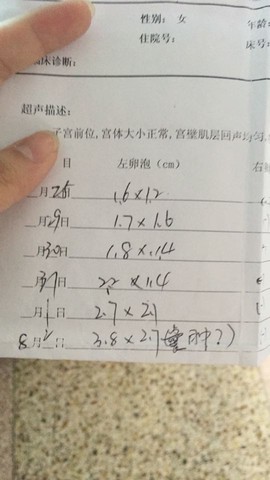 性别： 女 年龄：
住院号： 床号
临床诊断：
超声描述：
子宫前位，宫体大小正常，宫壁肌层回声均匀，
目 左卵泡（cm） 右
月 日 1.6×1.2
月29日 1.7×1.6
月30日 1.8×1.4
月31日 2.2×1.4
月1日 2.7×2.1
8月2日 3.8×2.7